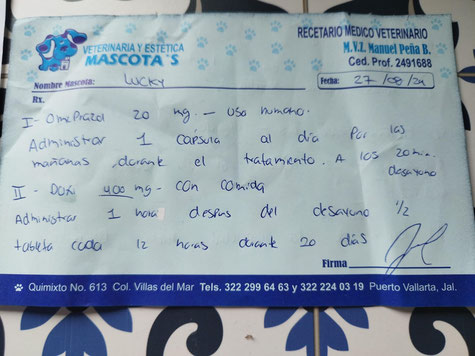 VETERINARIA Y ESTÉTICA
MASCOTA´S
RECETARIO MEDICO VETERINARIO
M.V.Z. Manuel Peña B.
Ced. Prof. 2491688
Nombre Mascota: LUCKY
Fecha: 27/08/21
Rx.
I- Omeprazol 20 mg. — uso humano.
Administrar 1 capsula al día por las
mañanas, durante el tratamiento. A los 20 min.
desayuno
II - Doxi 400 mg - con comida
Administrar 1 hora despues del desayuno 1/2
tableta cada 12 horas durante 20 días
Firma
Quimixto No. 613 Col. Villas del Mar Tels. 322 299 64 63 y 322 224 03 19 Puerto Vallarta, Jal.